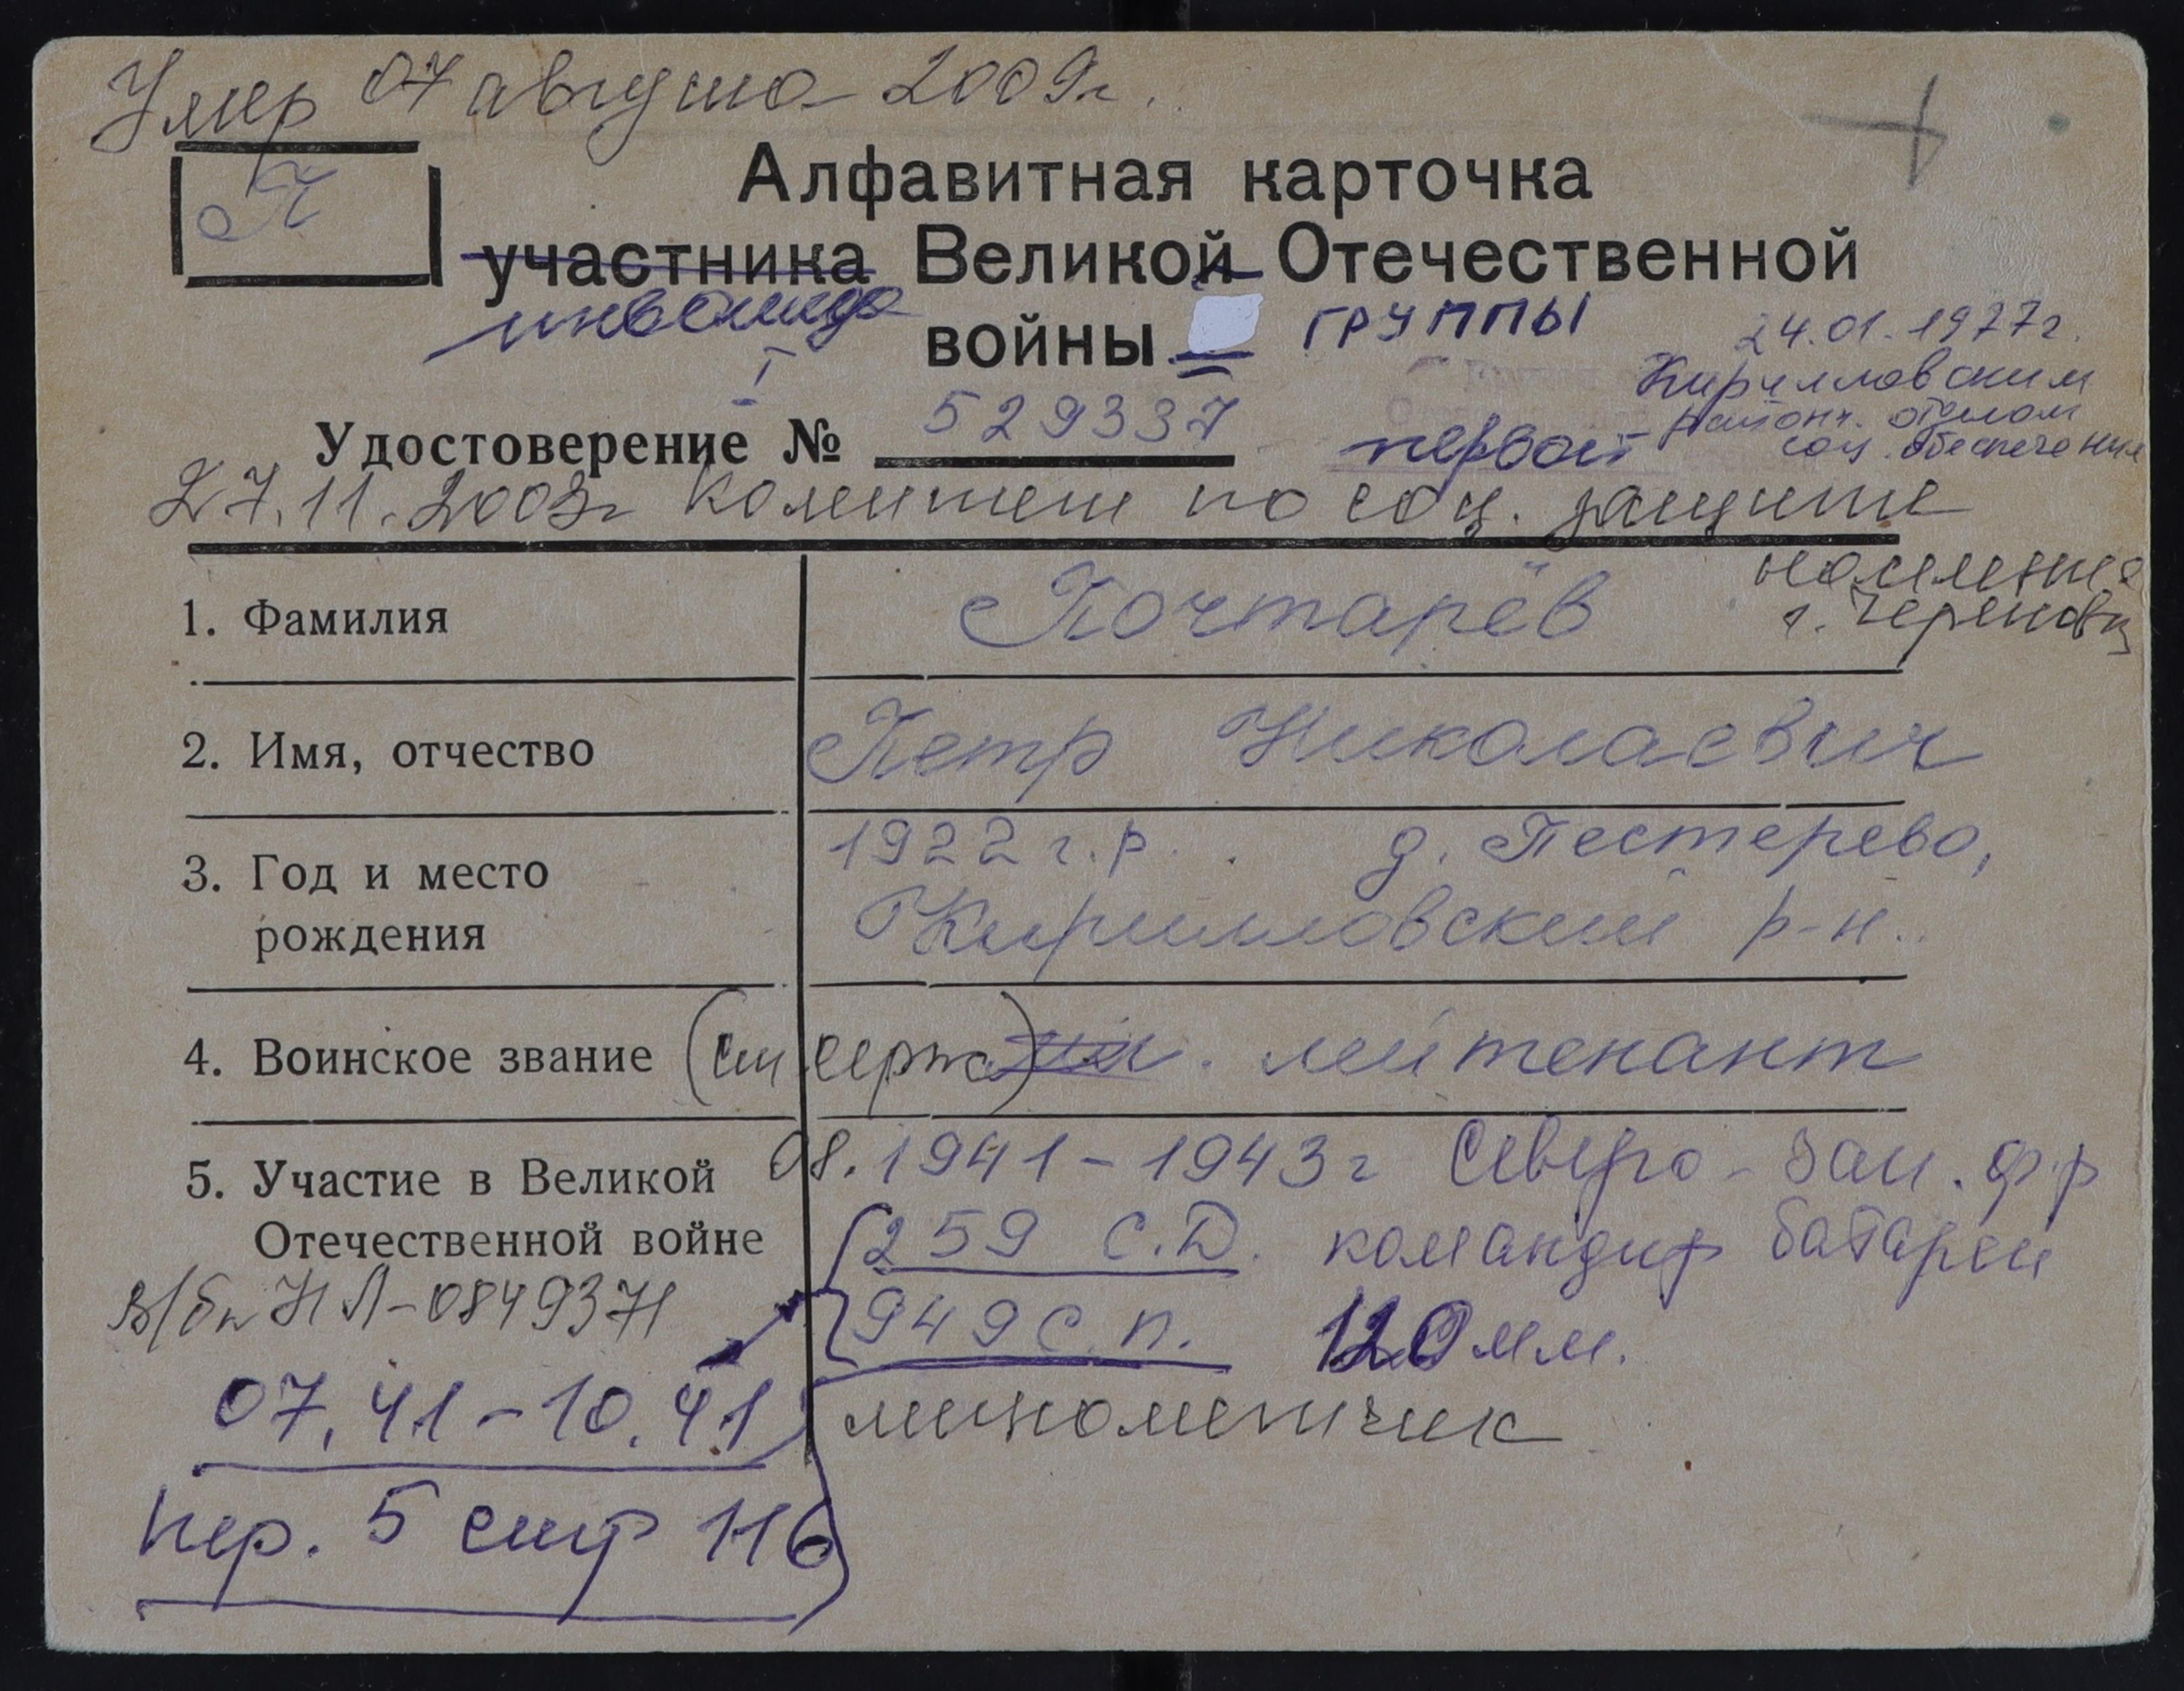 Умер 07 августа 2009г.
П
Алфавитная карточка
участника Великой Отечественной
инвалида
войны
ГРУППЫ
24.01.1977г.
Кирилловским
районн. отделом
соц. обеспечения
I
Удостоверение № 529337
первой
27.11.2003г Комитет по соц. защите
населения
г. Череповц
1. Фамилия Почтарёв
2. Имя, отчество Петр Николаевич
3. Год и место 1922 г.р. д. Пестерево,
рождения Кирилловский р-н.
4. Воинское звание (ст серж) лейтенант
5. Участие в Великой 08.1941-1943г Северо-Зап. фр
Отечественной войне 259 С.Д. командир батареи
в/бн НЛ-0849371
949 с.п. 120 мм.
07.41-10.41 минометчик
пер. 5 стр 116